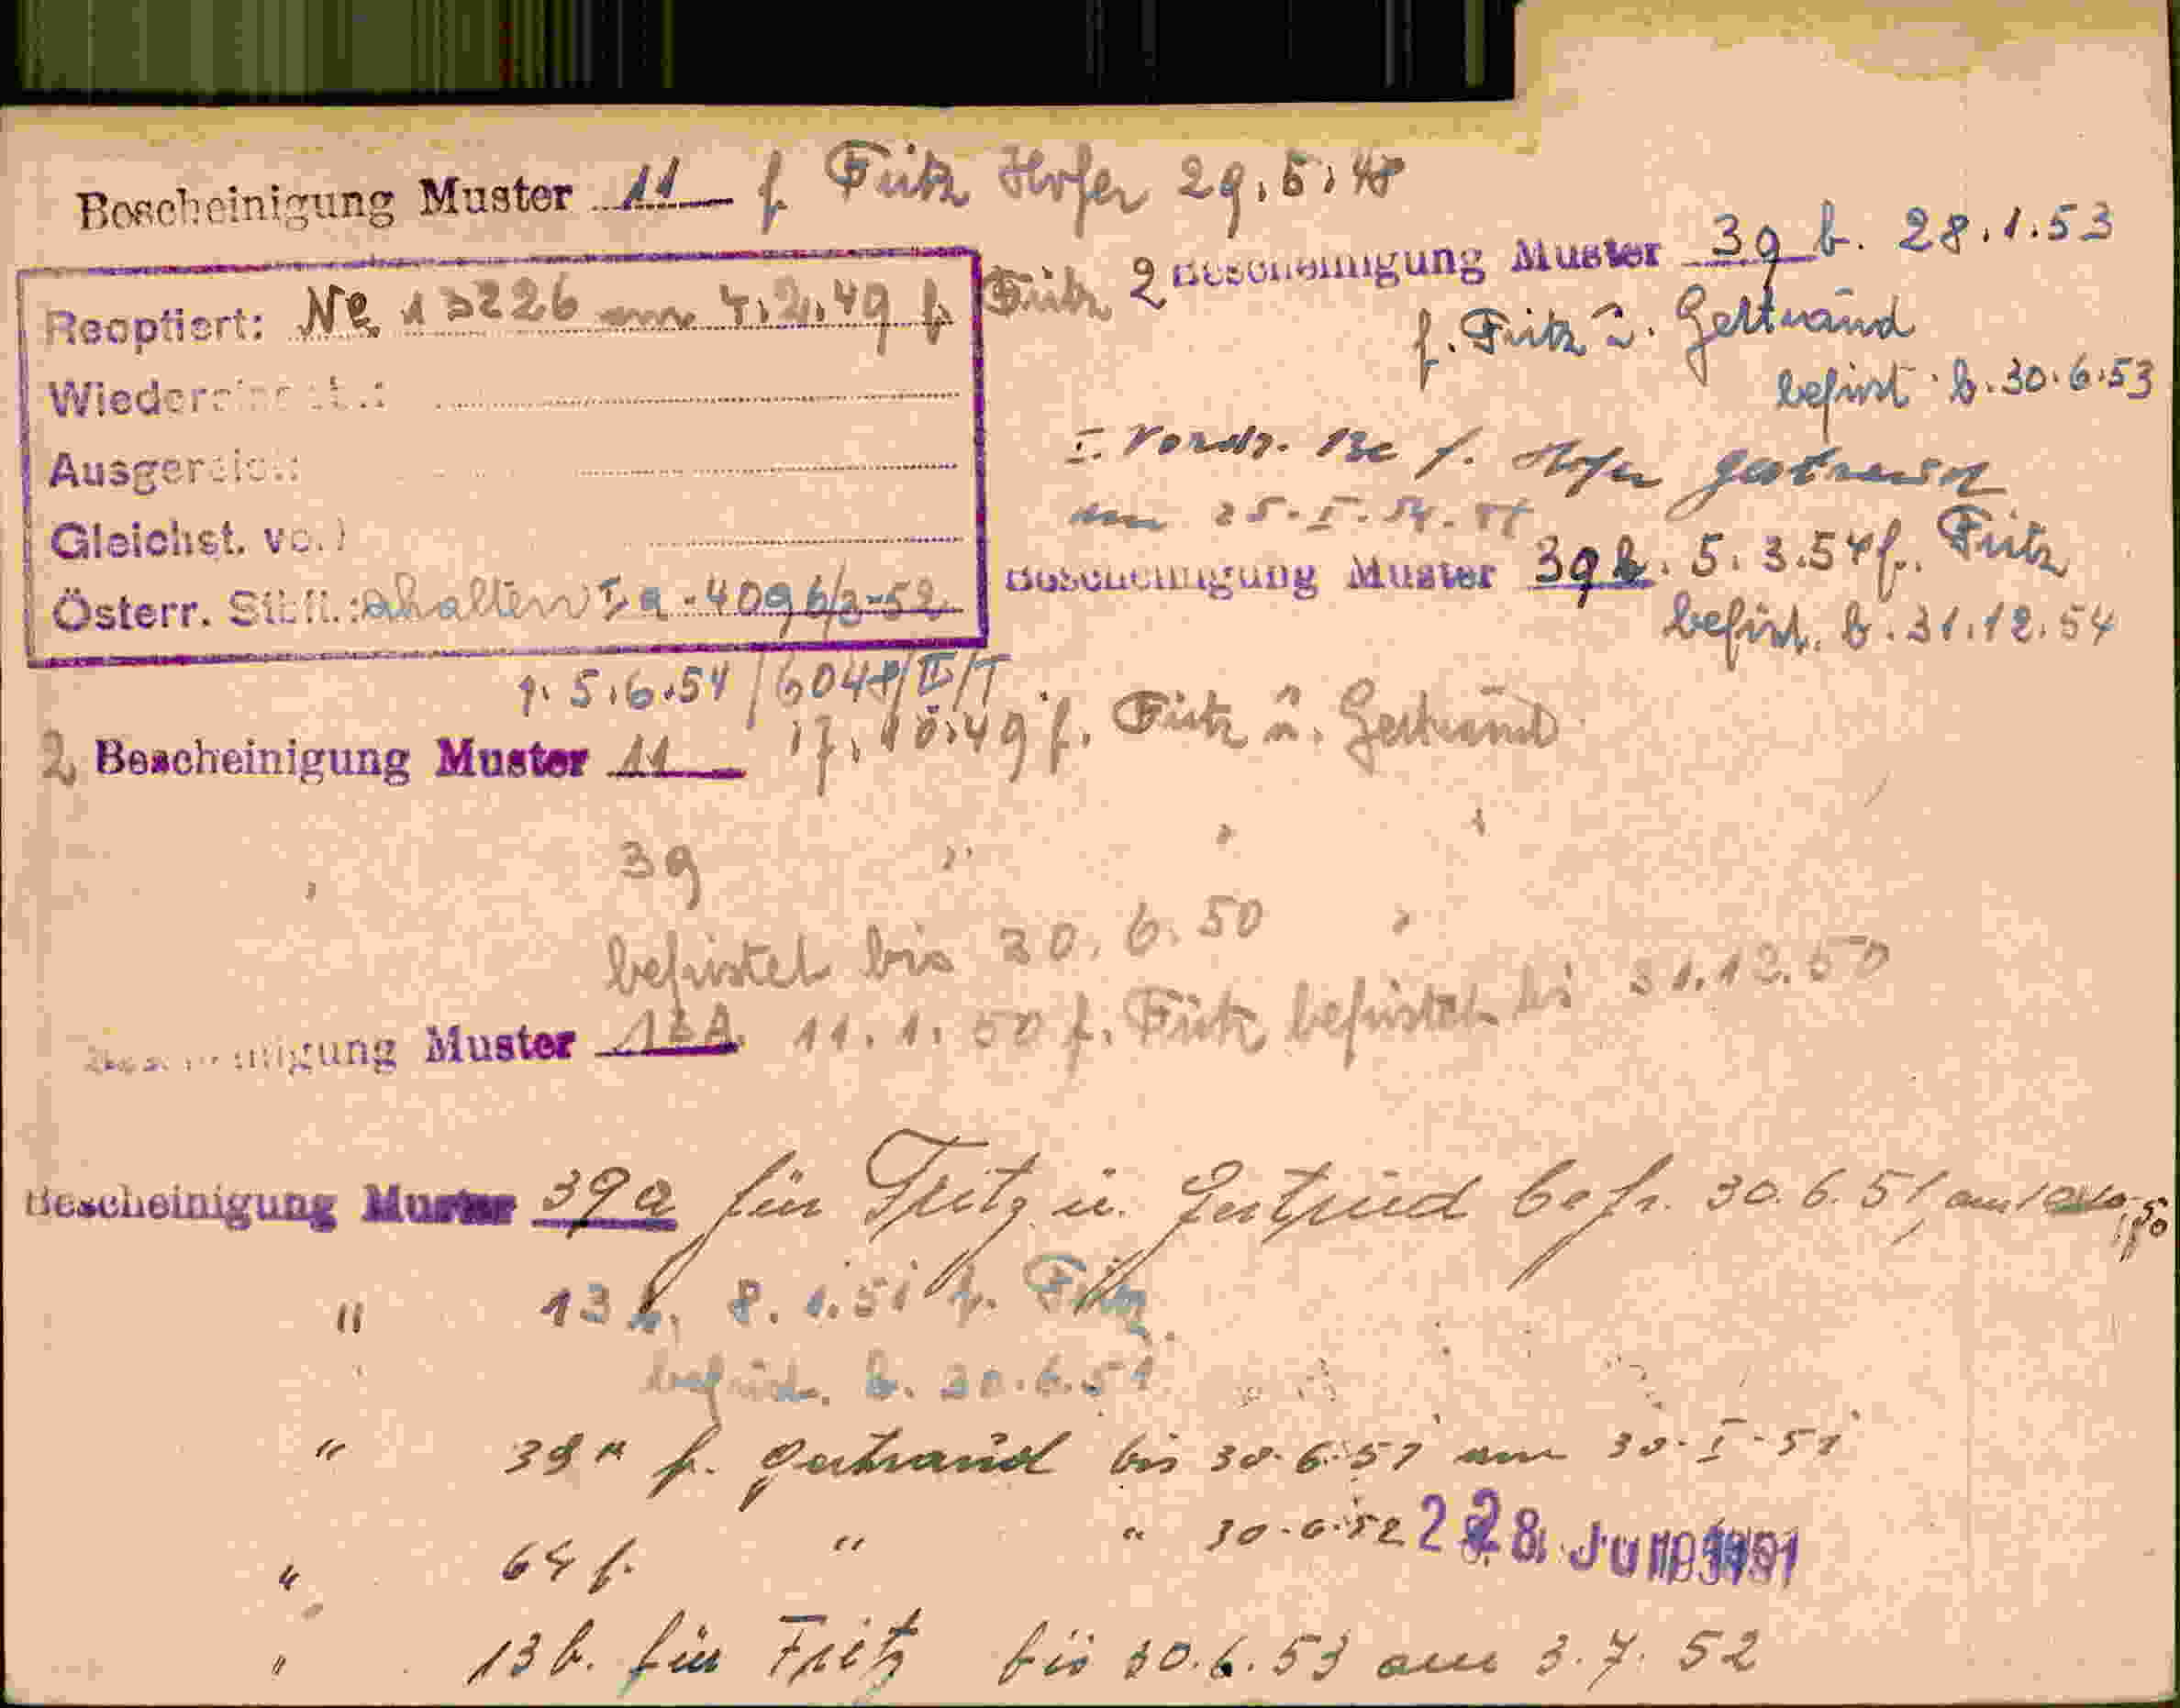 Bescheinigung Muster 11 f Fritz Hofer 29.5.48
Reoptiert: No 13226 am 4.2.49 f Fritz
Ausgereist:
Gleichst.
Österr. Stb. erhalten Ia-4096/2-52
5.6.54/6048/II/T
2 Bescheinigung Muster 39 b. 28.1.53
f. Fritz u. Gertraud
befrist b. 30.6.53
I. f. Hofer Gertraud
am 25.I.54.
Bescheinigung Muster 39 b. 5.3.54 f. Fritz
befrist. b. 31.12.54
2, Bescheinigung Muster 11 17.10.49 f. Fritz u. Gertraud
" 39 " " "
befristet bis 30.6.50 "
Bescheinigung Muster 13A 11.1.50 f. Fritz befristet bis 31.12.50
Bescheinigung Muster 39a für Fritz u. Gertraud befr. 30.6.51
" 13 b. 8.1.51 f. Fritz
befrist. b. 30.6.51
" 39a f. Gertraud bis 30.6.51 am 30.I.51
" 64 f. " " 30.6.52
" 13b. für Fritz bis 30.6.53 am 3.7.52